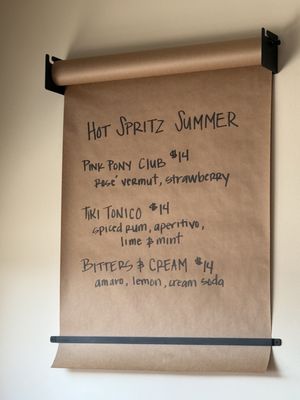 HOT SPRITZ SUMMER
PINK PONY CLUB $14
rosé vermut, strawberry
TIKI TONICO $14
spiced rum, aperitivo,
lime & mint
BITTERS & CREAM $14
amaro, lemon, cream soda